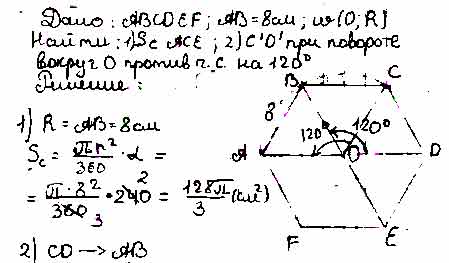 Дано: ABCDEF; AB=8см; ω(O; R)
Найти: 1) Sс ACE; 2) C'D' при повороте
вокруг O против ч.с. на 120°
Решение:
1) R = AB = 8см
Sс = πR²/360 · α =
= π·8²/360 3 · 240 2 = 128π/3 (см²)
2) CD → AB
B
C
8
120°
120°
A
O
D
F
E